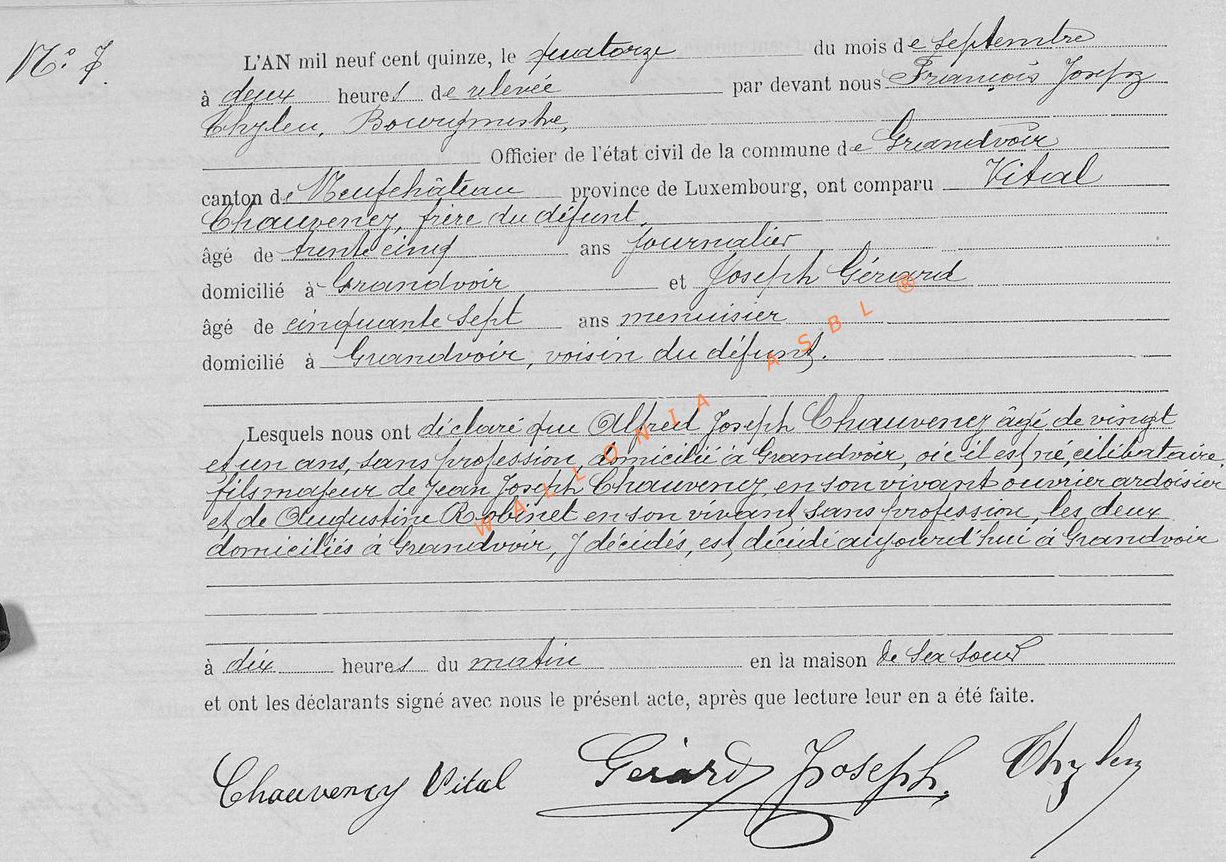 N° 7
L'AN mil neuf cent quinze, le quatorze du mois de septembre
à deux heures de relevée par devant nous François Joseph
Thylen, Bourgmestre,
Officier de l'état civil de la commune de Grandvoir
canton de Neufchâteau province de Luxembourg, ont comparu Vital
Chauvency, frère du défunt,
âgé de trente cinq ans journalier
domicilié à Grandvoir et Joseph Gérard
âgé de cinquante sept ans menuisier
domicilié à Grandvoir, voisin du défunt.
Lesquels nous ont déclaré que Alfred Joseph Chauvency âgé de vingt
et un ans, sans profession, domicilié à Grandvoir, où il est né, célibataire,
fils majeur de Jean Joseph Chauvency, en son vivant ouvrier ardoisier
et de Augustine Robinet en son vivant sans profession, les deux
domiciliés à Grandvoir, y décédés, est décédé aujourd'hui à Grandvoir
à dix heures du matin en la maison de sa soeur
et ont les déclarants signé avec nous le présent acte, après que lecture leur en a été faite.
Chauvency Vital Gérard Joseph. Thylen
WALLONIA ASBL ®